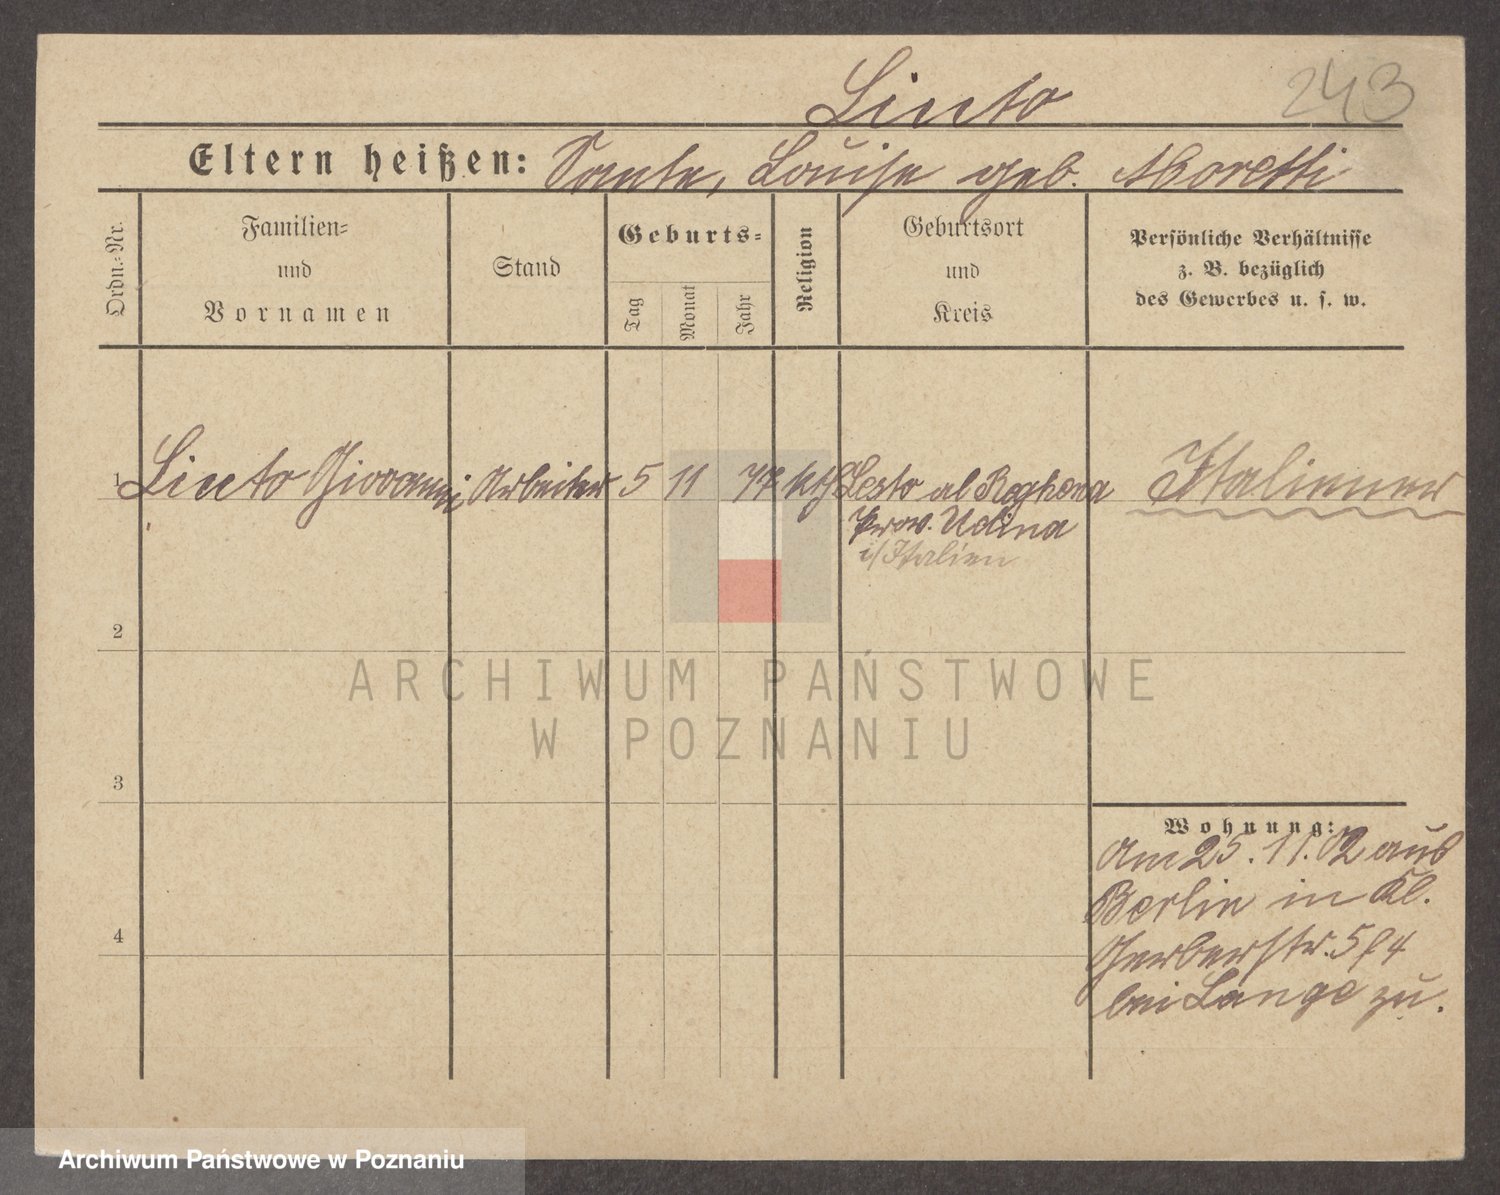 243
Liuto
Eltern heißen: Sante, Louise geb. Moretti
Ordn.-Nr.
Familien-
und
Vornamen
Stand
Geburts-
Tag
Monat
Jahr
Religion
Geburtsort
und
Kreis
Persönliche Verhältnisse
z. B. bezüglich
des Gewerbes u. s. w.
1 Liuto Giovanni Arbeiter 5 11 77 kth Sesto al Reghena Italiener
Prov. Udina
i/Italien
2
3
4
Wohnung:
Am 25.11.02 aus
Berlin in Kl.
Gerberstr. 5/4
bei Lange zu.
ARCHIWUM PAŃSTWOWE
W POZNANIU
Archiwum Państwowe w Poznaniu